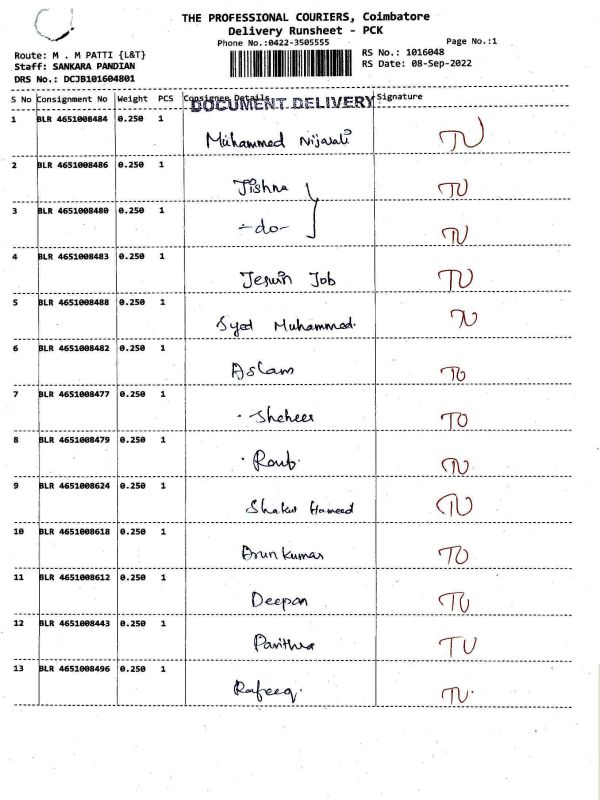 THE PROFESSIONAL COURIERS, Coimbatore
Delivery Runsheet - PCK
Phone No.:0422-3505555
Page No.:1
Route: M . M PATTI {L&T}
Staff: SANKARA PANDIAN
DRS No.: DCJB101604801
RS No.: 1016048
RS Date: 08-Sep-2022
S No Consignment No Weight PCS Consignee Details Signature
DOCUMENT DELIVERY
1 BLR 4651008484 0.250 1
Muhammed Nijavali TU
2 BLR 4651008486 0.250 1
Jishnu TU
3 BLR 4651008480 0.250 1
-do- TU
4 BLR 4651008483 0.250 1
Jeswin Job TU
5 BLR 4651008488 0.250 1
Syed Muhammed. TU
6 BLR 4651008482 0.250 1
Aslam TU
7 BLR 4651008477 0.250 1
Sheheer TU
8 BLR 4651008479 0.250 1
TU
9 BLR 4651008624 0.250 1
Shakul Hameed TU
10 BLR 4651008618 0.250 1
Arun Kumar TU
11 BLR 4651008612 0.250 1
Deepan TU
12 BLR 4651008443 0.250 1
Pavithra TU
13 BLR 4651008496 0.250 1
Rafeeq. TU.